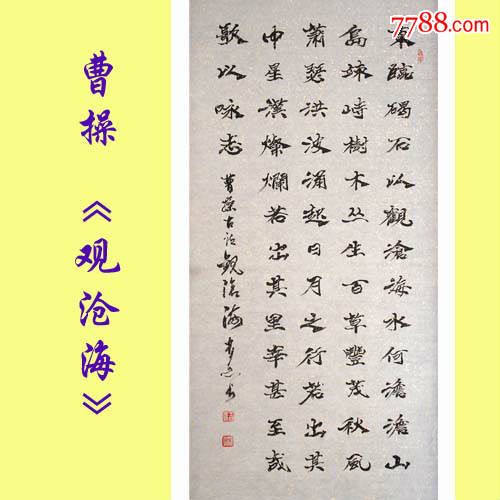 7788.com
曹操《观沧海》
東臨碣石以觀滄海水何澹澹山
島竦峙樹木丛生百草豐茂秋風
蕭瑟洪波涌起日月之行若出其
中星漢燦爛若出其里幸甚至哉
歌以咏志 曹操古诗觀滄海 书